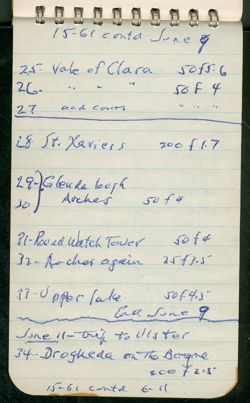 15-61 contd June 9
25- Vale of Clara 50 f5-6
26- " " " 50 f 4
27 and cows " " "
28 St. Xaviers 200 f 1.7
29- Glendalough
30 Arches 50 f 4
31- Round Watch Tower 50 f 4
32- Arches again 25 f 3.5
33- Upper lake 50 f 4.5
End June 9
June 11- trip to Ulster
34- Drogheda on The Boyne
200 f 2.5
15-61 contd 6-11